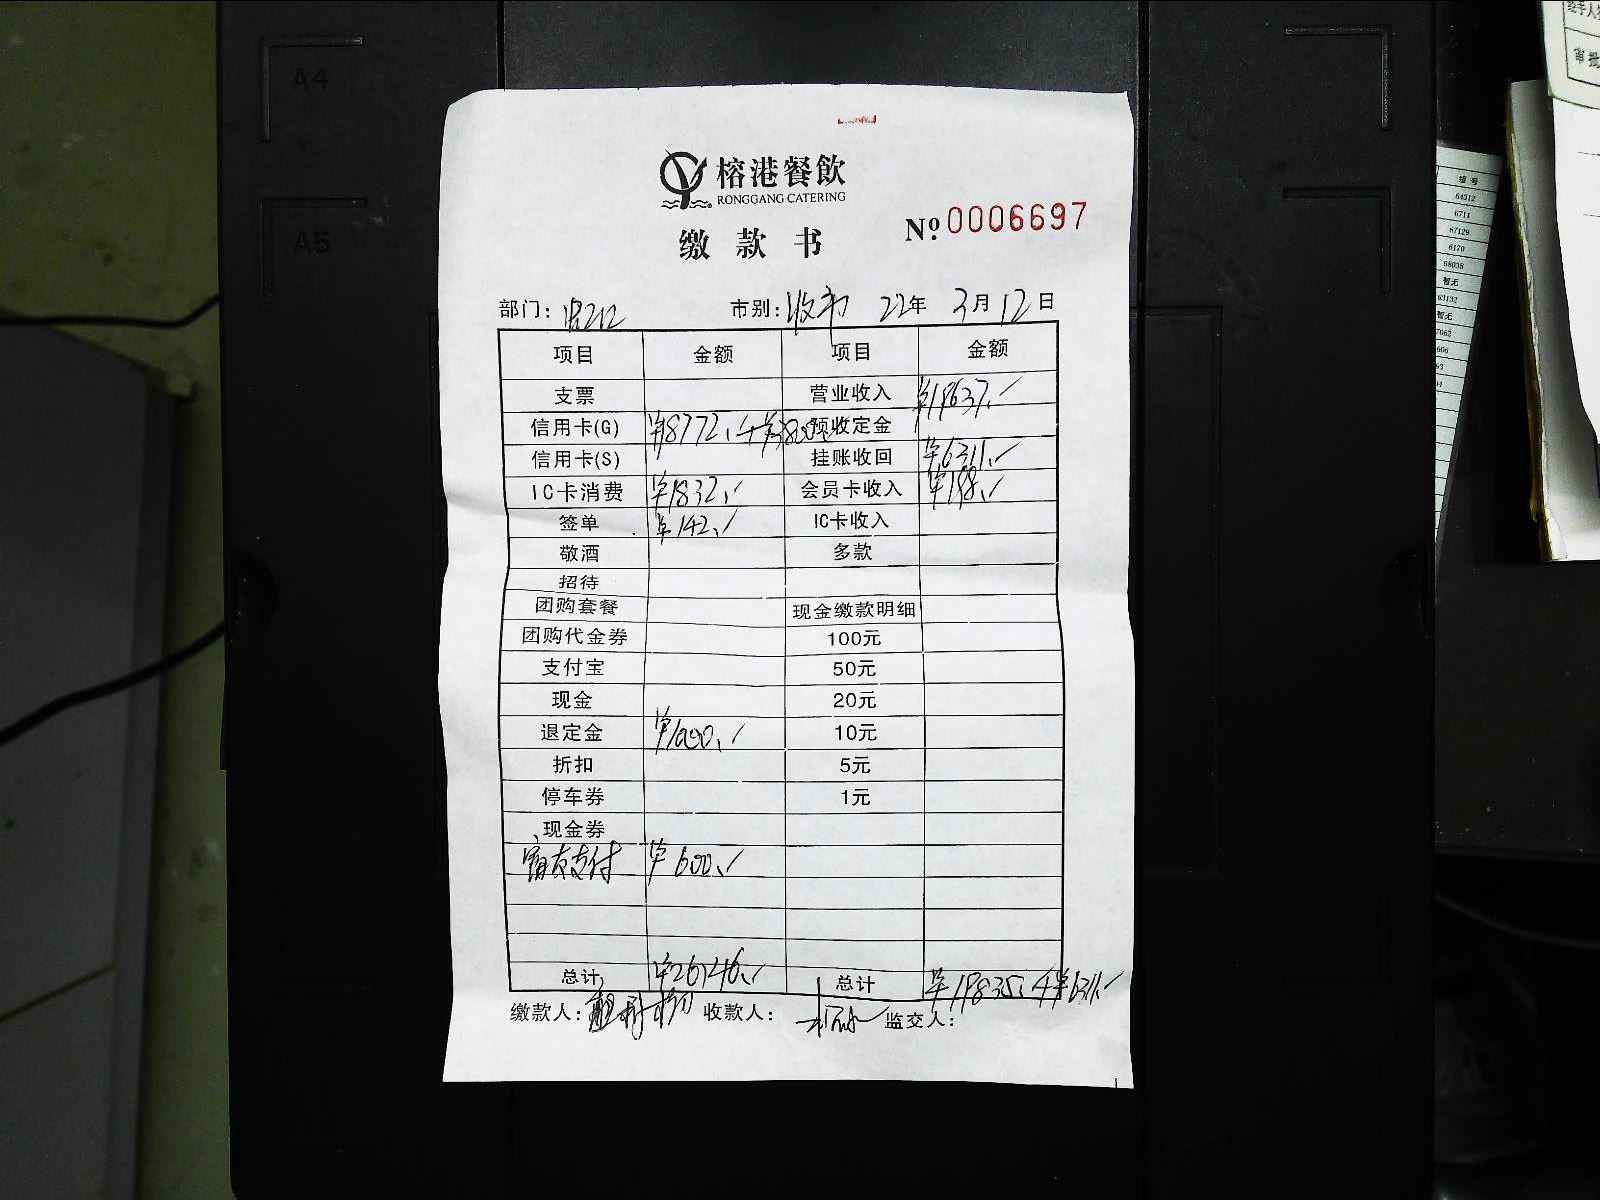 A4
A5
榕港餐飲
RONGGANG CATERING
缴款书
Nº 0006697
部门: 市别:收市 22年 3月12日
项目 金额 项目 金额
支票 营业收入 ¥19637.
信用卡(G) ¥18772. + ¥3800 预收定金
信用卡(S) 挂账收回 ¥6311.
IC卡消费 ¥1832. 会员卡收入 ¥198.
签单 ¥142. IC卡收入
敬酒 多款
招待
团购套餐 现金缴款明细
团购代金券 100元
支付宝 50元
现金 20元
退定金 ¥1000. 10元
折扣 5元
停车券 1元
现金券
支付 ¥600.
总计 ¥26146. 总计 ¥19835. + ¥6311.
缴款人: 收款人: 监交人:
经手人
审批
64312
6711
67129
6170
68038
暂无
63132
暂无